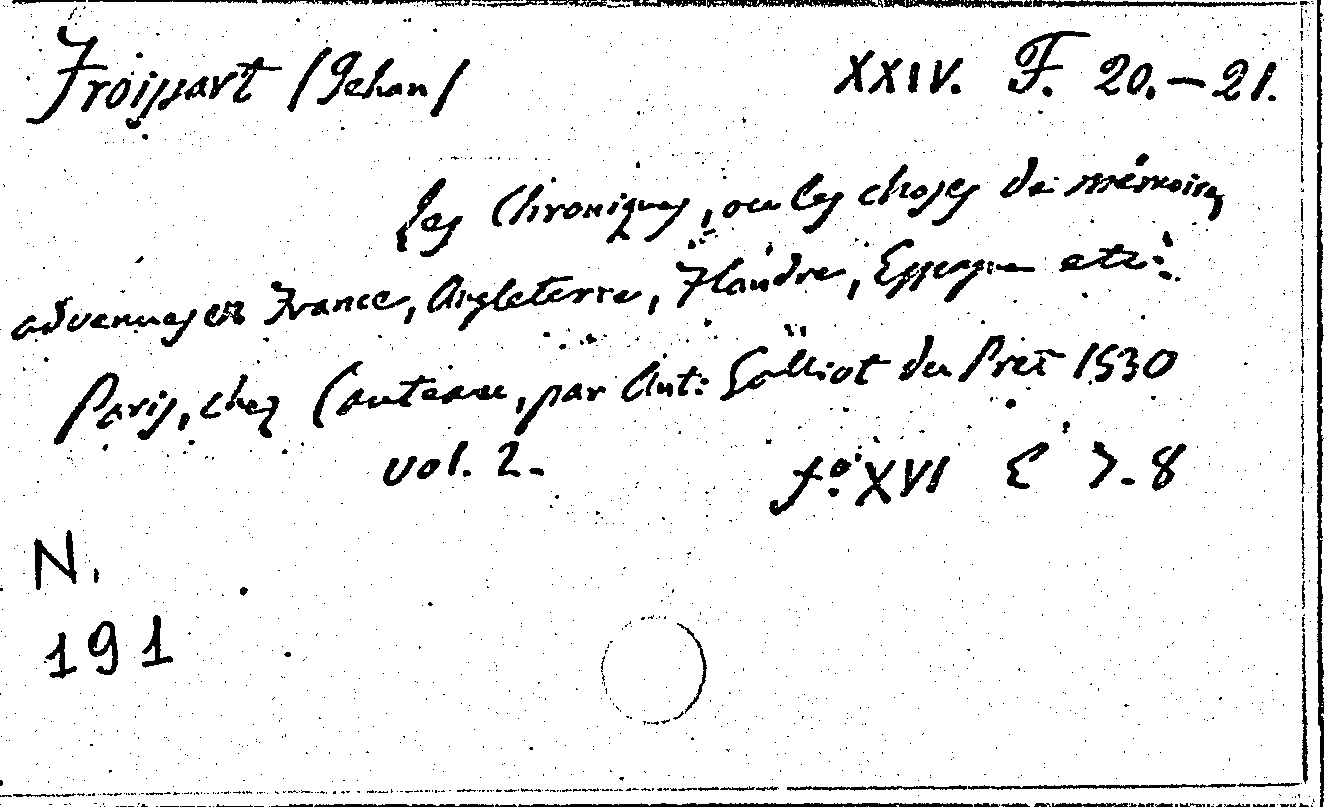 Froissart /Jehan/ XXIV. F. 20.-21.
Les Chroniques, ou les choses de mémoire
advenues en France, Angleterre, Flandre, Espagne etc.
Paris, chez Couteau, par Ant. Galliot du Pret 1530
vol. 2. f.º XVI E 7.8
N.
191